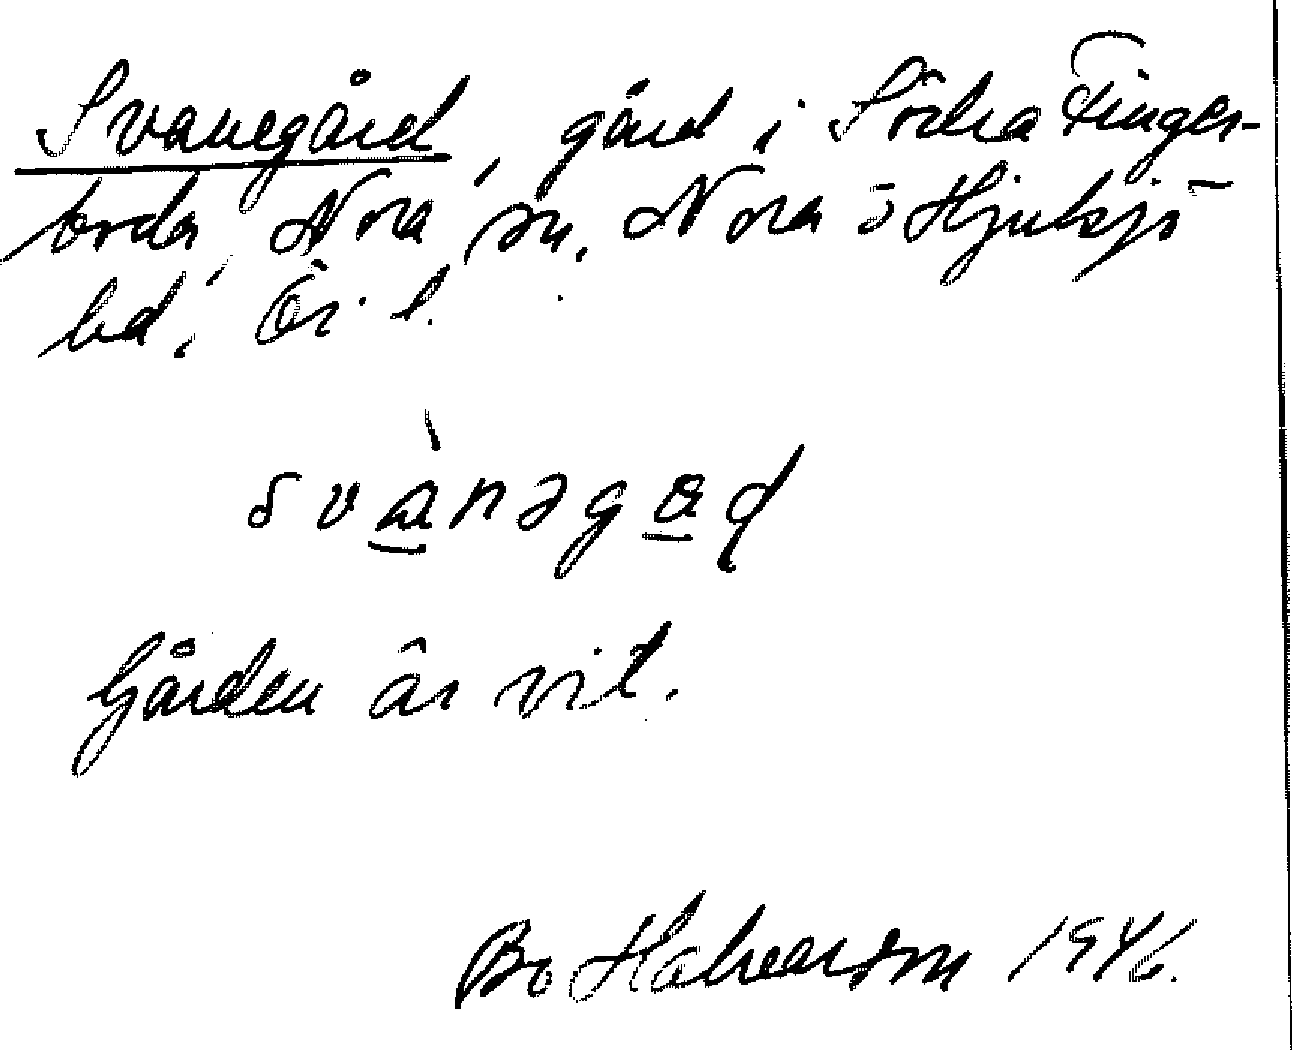 Svanegård, gård i Södra Finger-
boda, Nora sn. Nora o Hjulsjö
bd. Ör. l.
svànəgəd
Gården är vit.
Bo 1946.